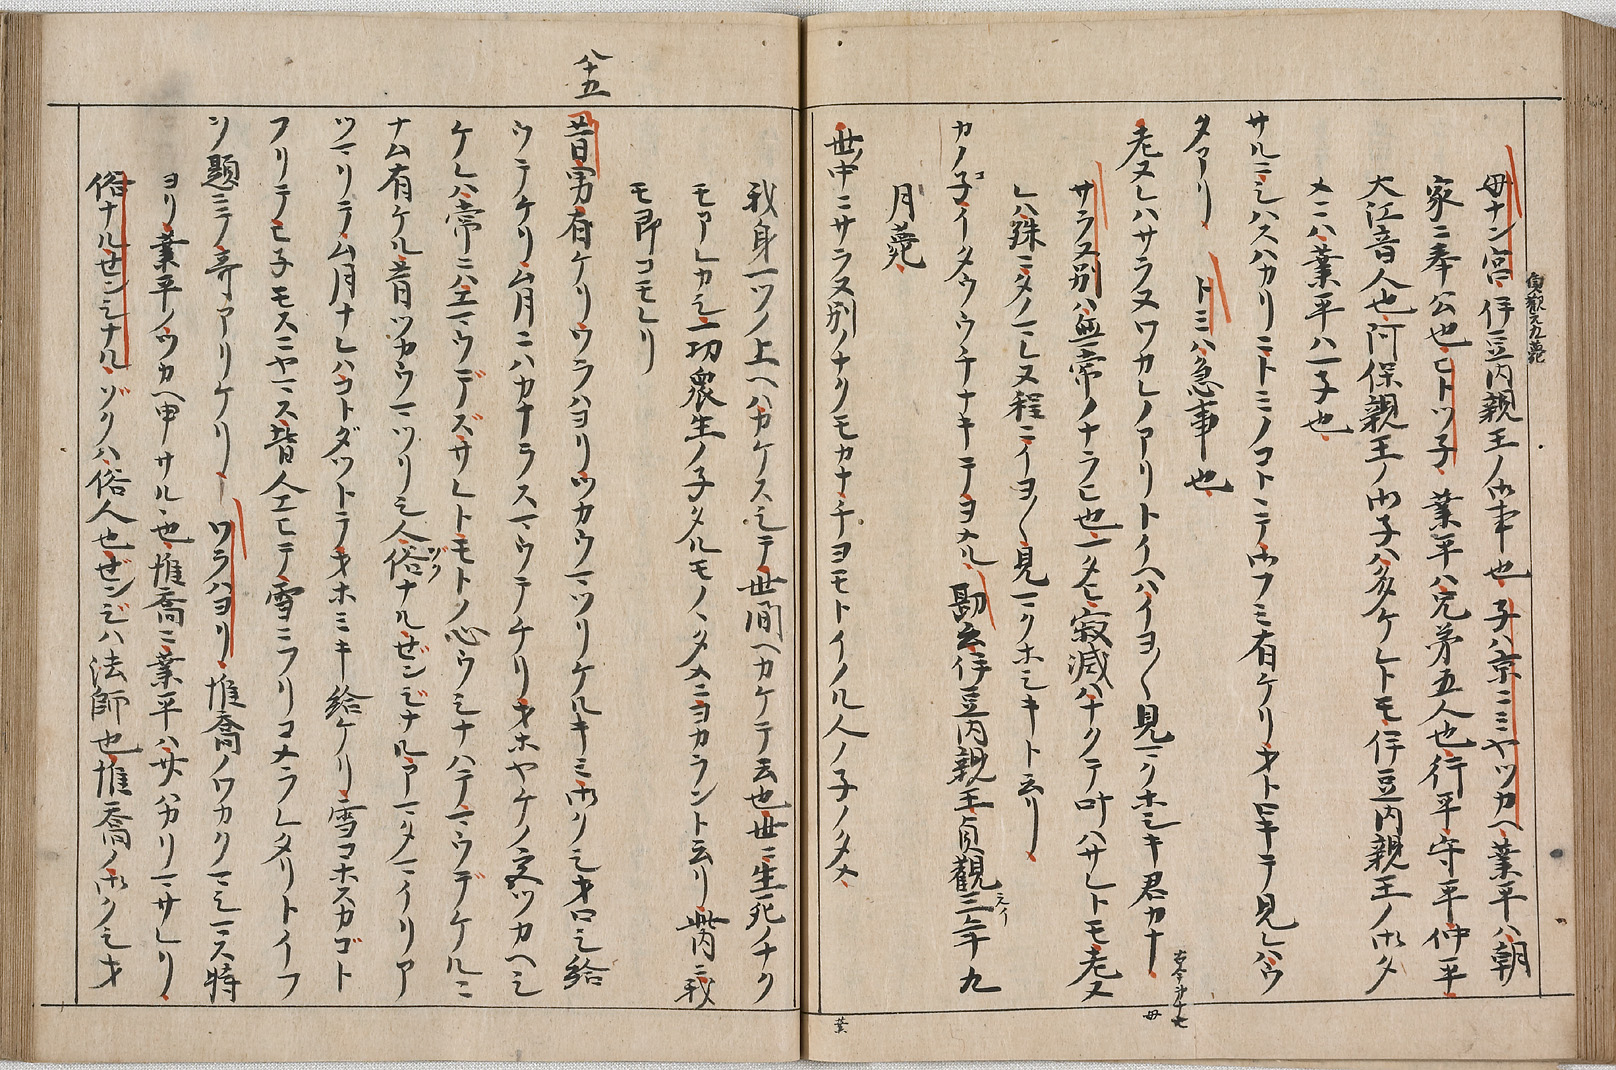 貞観元九薨
母ナン宮伊豆内親王ノ御事也子ハ京ニミヤツカヘ業平ハ朝
家ニ奉公也ヒトツ子業平ハ兄弟五人也行平守平仲平
大江音人也阿保親王ノ御子ハ多ケレトモ伊豆内親王ノ御タ
メニハ業平ハ一子也
サルニシハスハカリニトミノコトニテ御フミ有ケリオトロキテ見レハウ
タアリ トミハ急事也
老ヌレハサラヌワカレノアリトイヘハイヨ〱見マクホシキ君カナ
古今第十七
母
サラヌ別ハ無常ノナラヒ也一タヒ寂滅ハナクテ叶ハサレトモ老ヌ
レハ殊ニタノマレヌ程ニイヨ〱見マクホシキト云リ
カノ子イタウウチナキテヨメル 勘云伊豆内親王貞観三年九
元イ
月薨
世中ニサラヌ別ノナクモカナ千ヨモトイノル人ノ子ノタメ
業
我身一ツノ上ヘハカケスシテ世間ヘカケテ云也世ニ生死ノナク
モアレカシ一切衆生ノ子タルモノヽタメニヨカラント云リ此内ニ我
モ即コモレリ
八十五
昔男有ケリワラハヨリツカウマツリケルキミ御クシオロシ給
ウテケリム月ニハカナラスマウテケリオホヤケノ宮ツカヘシ
ケレハ常ニハエマウデズサレトモトノ心ウシナハテマウデケルニ
ナム有ケル昔ツカウマツリシ人俗ナルゼンジナルアマタマイリア
ゾク
ツマリテム月ナレハコトダツトテオホミキ給ケリ雪コホスカゴト
フリテヒネモスニヤマス皆人エヒテ雪ニフリコメラレタリトイフ
ヲ題ニテ哥アリケリ ワラハヨリ惟喬ノワカクマシマス時
ヨリ業平ノツカヘ申サル也惟喬ニ業平ハ廿ハカリマサレリ
俗ナルゼンジナルゾクハ俗人也ゼンジハ法師也惟喬ノ御クシオ